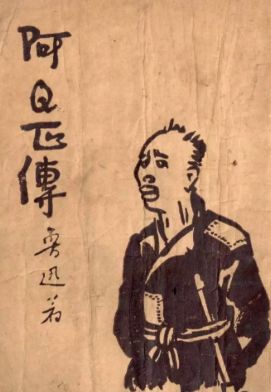 阿Q正傳
魯迅着